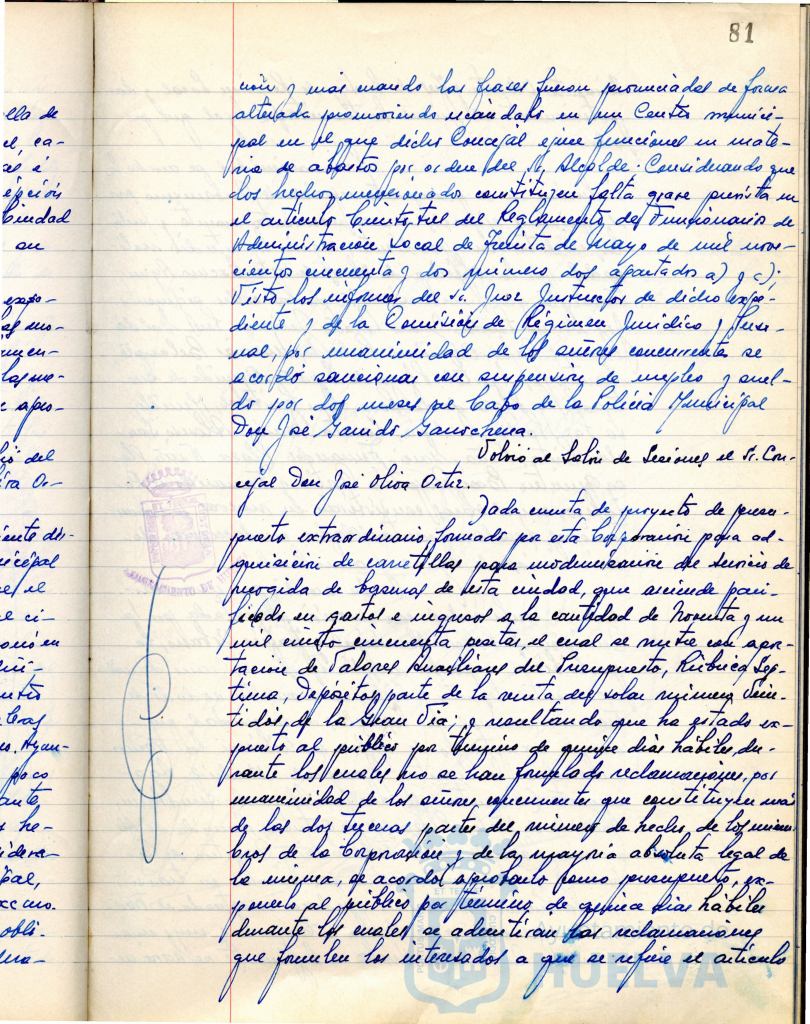 81
ción y más cuando las frases fueron pronunciadas de forma
alterada promoviendo escándalo en un Centro munici-
pal en el que dicho Concejal ejerce funciones en mate-
ria de abastos por orden del Sr. Alcalde. Considerando que
los hechos mencionados constituyen falta grave prevista en
el artículo Ciento tres del Reglamento de Funcionarios de
Administración Local de Treinta de Mayo de mil nove-
cientos cincuenta y dos número dos apartados a) y c);
Visto, los informes del Sr. Juez Instructor de dicho expe-
diente y de la Comisión de Régimen Jurídico y
nal, por unanimidad de los señores concurrentes se
acordó sancionar con suspensión de empleo y suel-
do por dos meses al Cabo de la Policía Municipal
Don José Garrido
Volvió al Salón de Sesiones el Sr. Con-
cejal Don José Oliva Ortiz.
Dada cuenta de proyecto de presu-
puesto extraordinario, formado por esta Corporación para ad-
quisición de carretillas para modernización del Servicio de
recogida de basuras de esta ciudad, que asciende
en gastos e ingresos a la cantidad de Noventa y un
mil ciento cincuenta pesetas, el cual se nutre con apor-
tación de Valores Auxiliares del Presupuesto, Rúbrica Sép-
tima, Depósitos, parte de la venta del solar número Vein-
tidós, de la Gran Vía; y resultando que ha estado ex-
puesto al público por término de quince días hábiles, du-
rante los cuales no se han formulado reclamaciones, por
unanimidad de los señores concurrentes que constituyen más
de las dos terceras partes del número de hecho, de los miem-
bros de la Corporación y de la mayoría absoluta legal de
la misma, se acordó aprobarlo como presupuesto, ex-
ponerlo al público por término de quince días hábiles
durante los cuales se admitirán las reclamaciones
que formulen los interesados a que se refiere el artículo
HUELVA